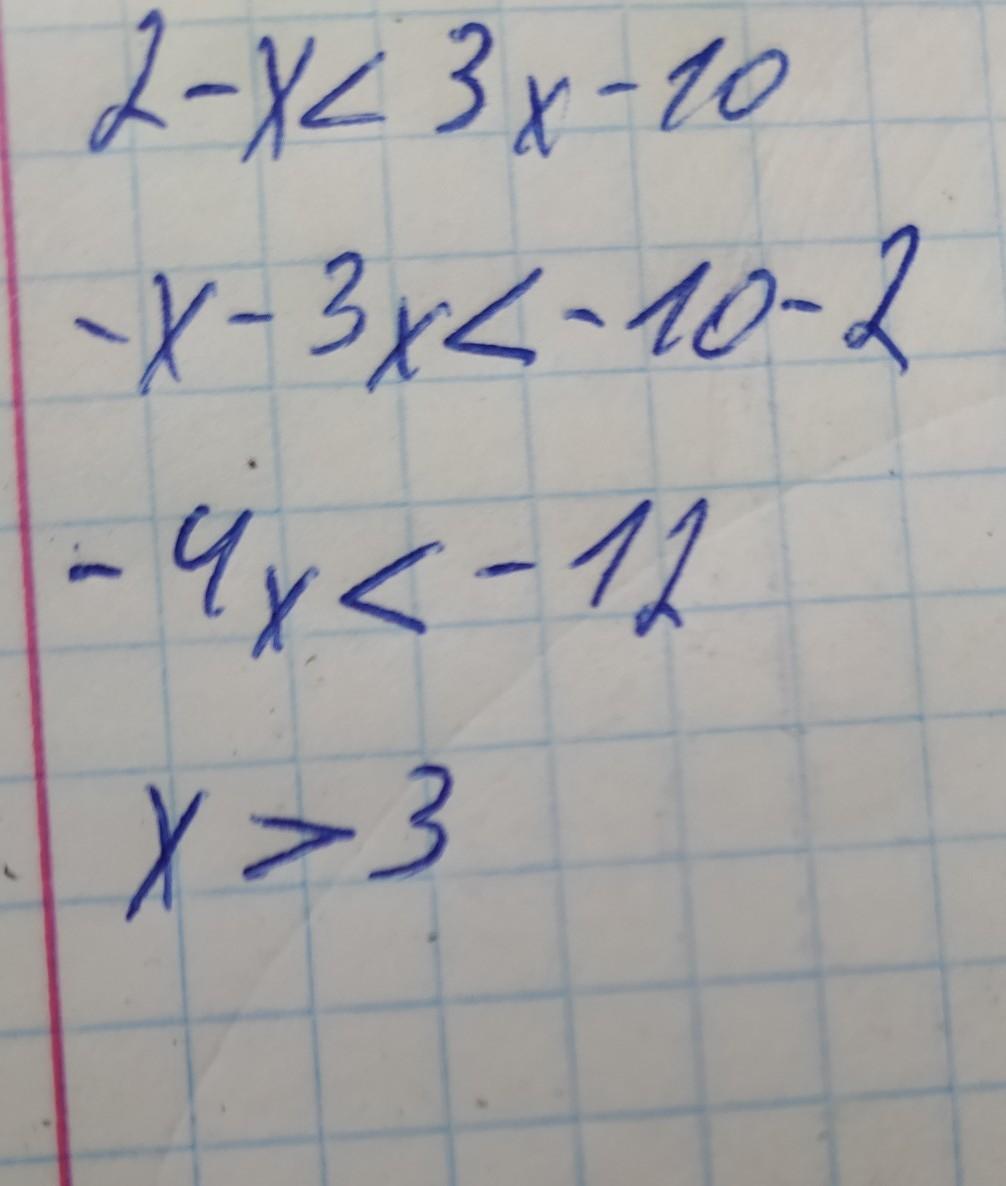 2-x< 3x-10
-x-3x<-10-2
-4x<-12
x>3